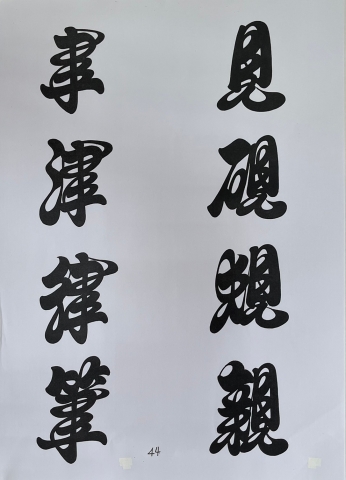 見硯規親
聿津律筆
44